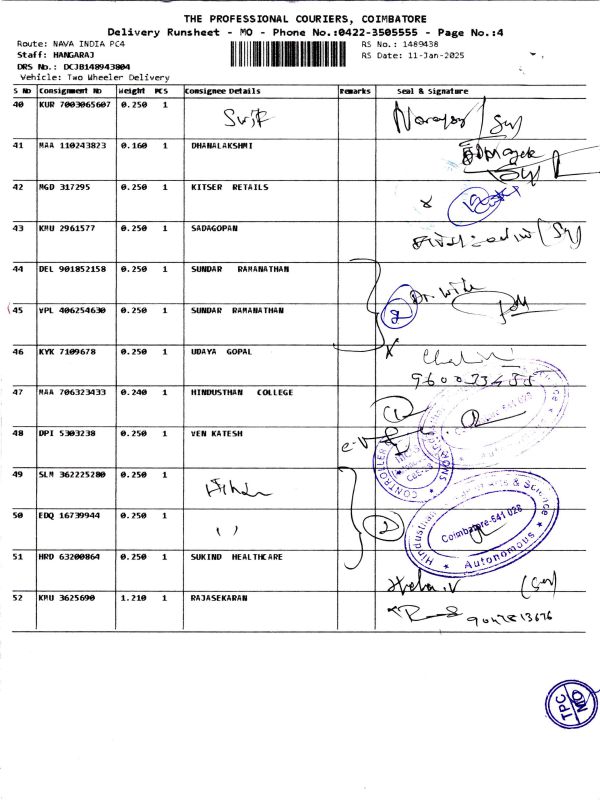 THE PROFESSIONAL COURIERS, COIMBATORE
Delivery Runsheet - MO - Phone No.:0422-3505555 - Page No.:4
Route: NAVA INDIA PC4
RS No.: 1489438
Staff: HANGARAJ
RS Date: 11-Jan-2025
DRS No.: DCJB148943804
Vehicle: Two Wheeler Delivery
S No Consignment No Weight PCS Consignee Details Remarks Seal & Signature
40 KUR 7003065607 0.250 1
41 MAA 110243823 0.160 1 DHANALAKSHMI
42 MGD 317295 0.250 1 KITSER RETAILS
43 KMU 2961577 0.250 1 SADAGOPAN
44 DEL 901852158 0.250 1 SUNDAR RAMANATHAN
2
45 VPL 406254630 0.250 1 SUNDAR RAMANATHAN
46 KYK 7109678 0.250 1 UDAYA GOPAL
47 MAA 706323433 0.240 1 HINDUSTHAN COLLEGE
48 DPI 5303238 0.250 1 VENKATESH
49 SLM 362225280 0.250 1
50 EDQ 16739944 0.250 1
2
Hindusthan College of Arts & Science
Coimbatore-641 028
Autonomous
51 HRD 63200864 0.250 1 SUKIND HEALTHCARE
52 KMU 3625690 1.210 1 RAJASEKARAN
9047813676
TPC
MO